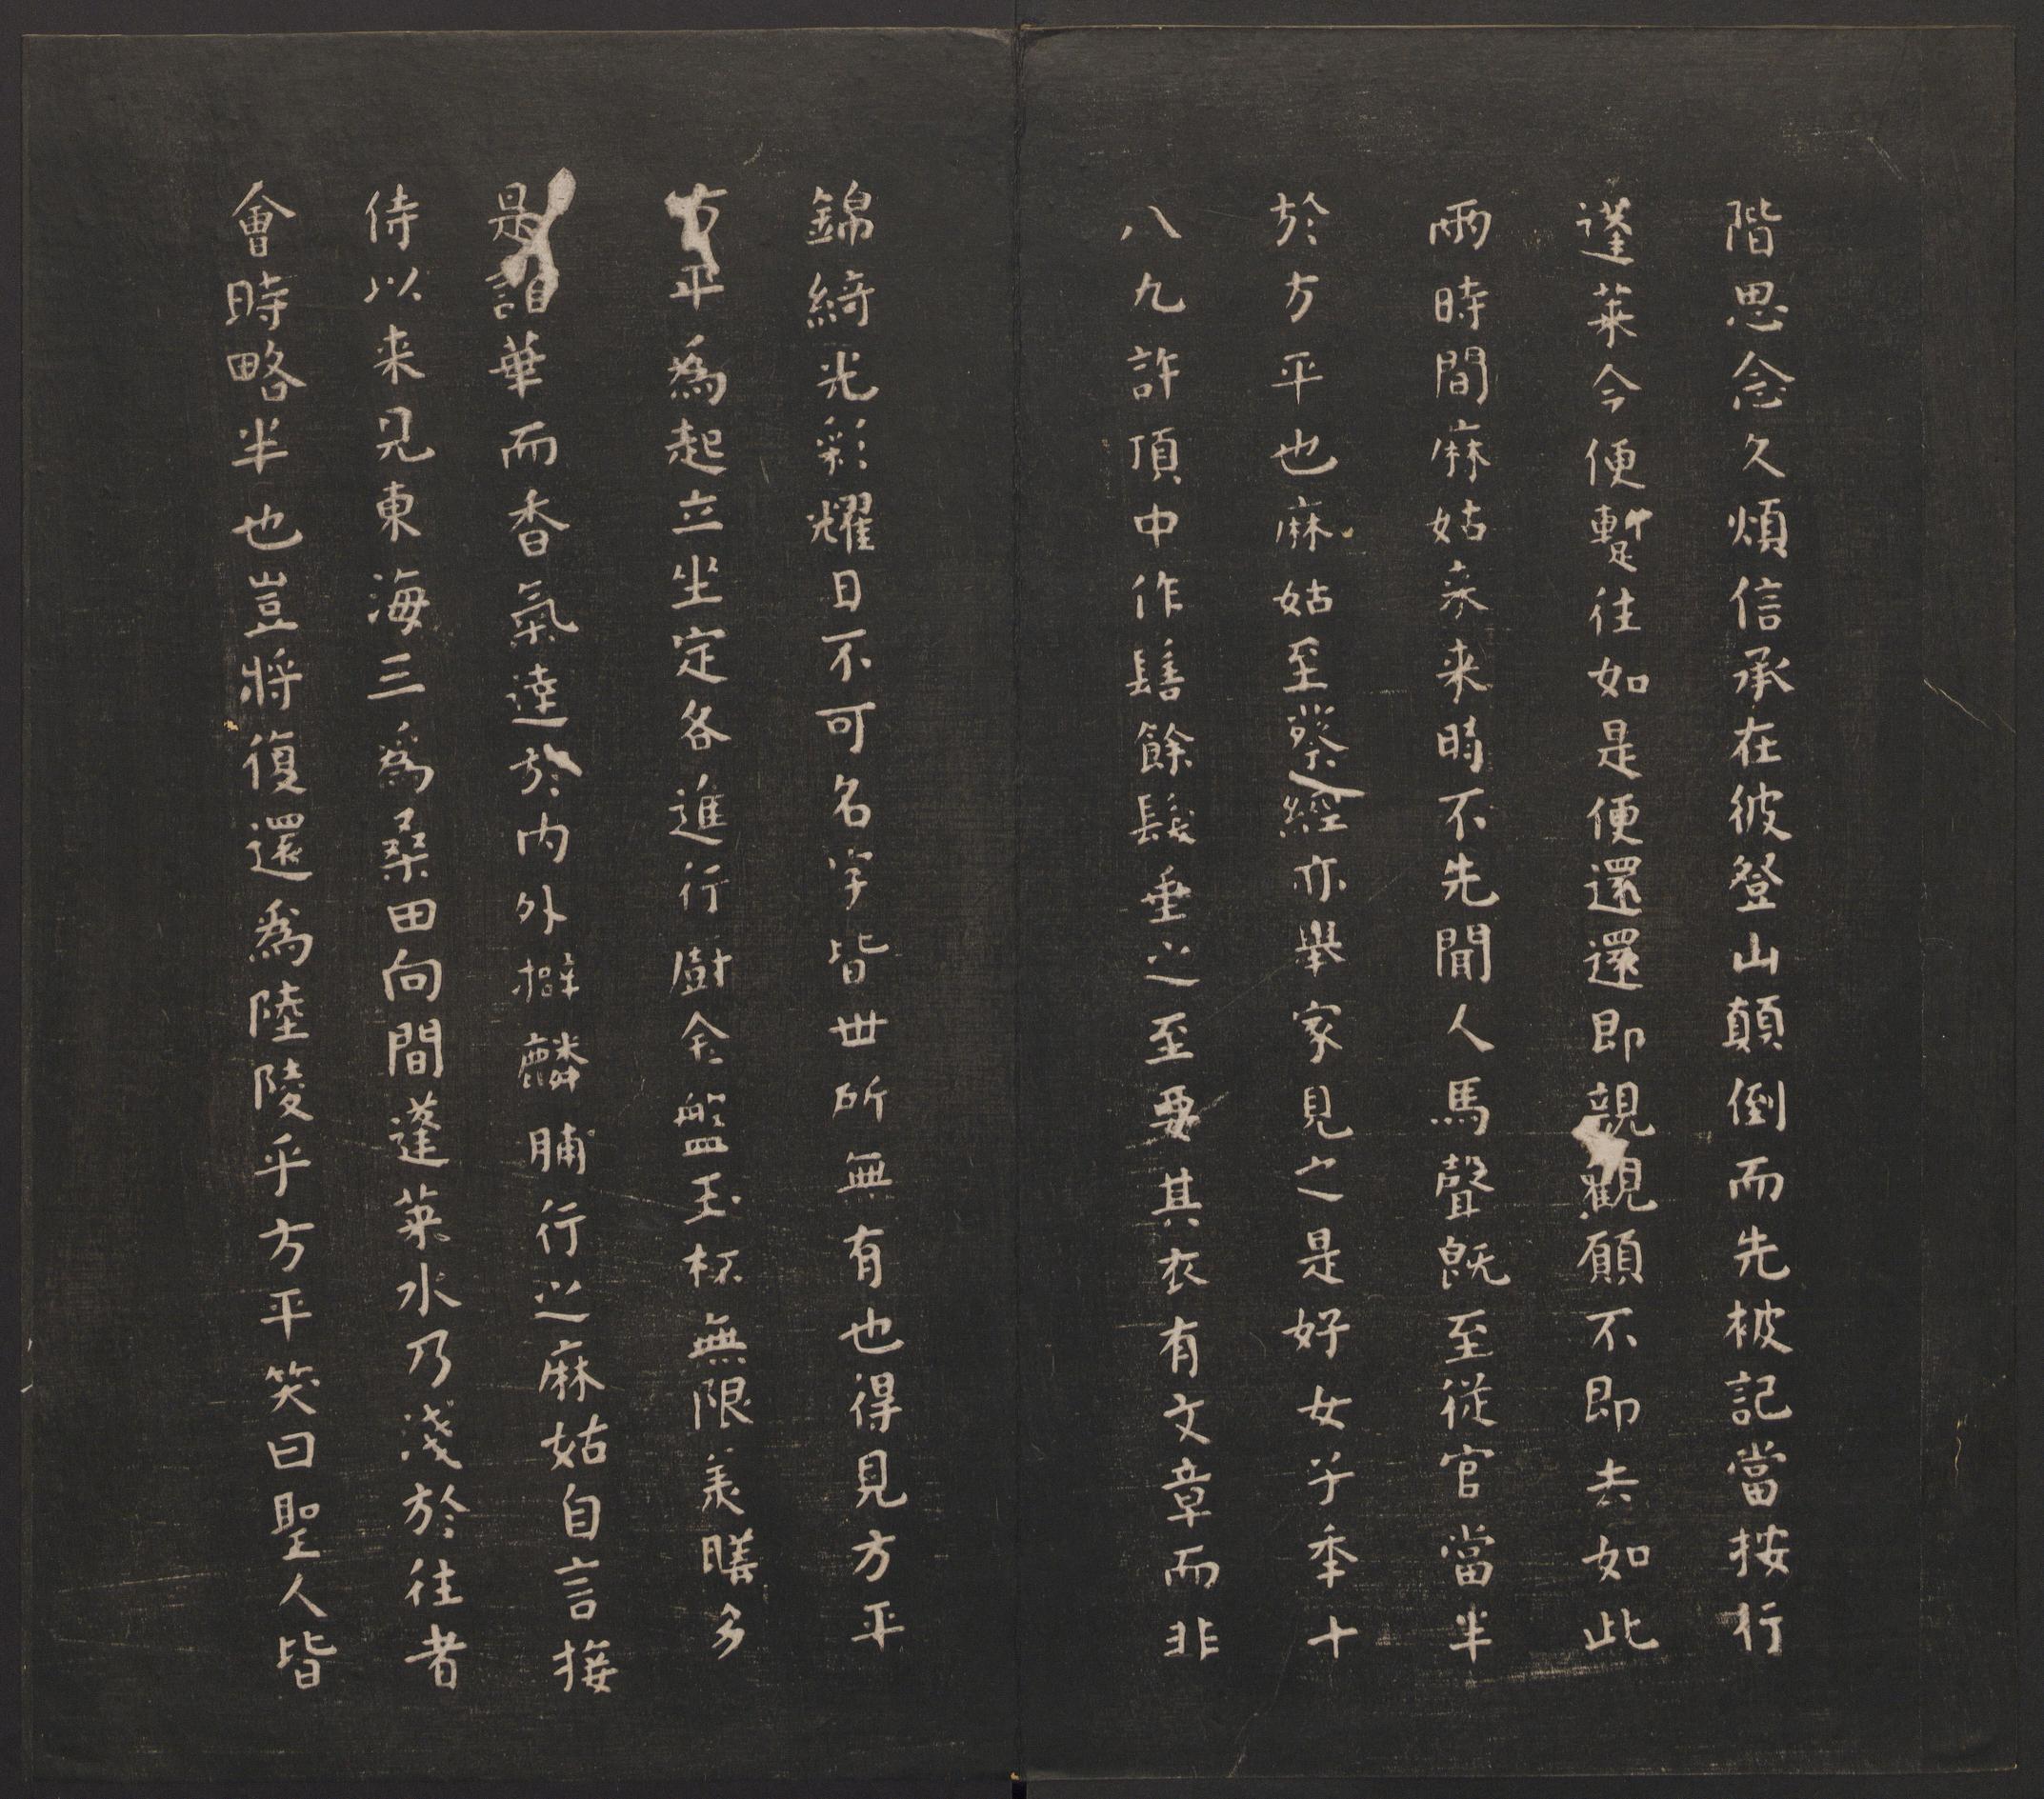 階思念久煩信承在彼登山顛倒而先被記當按行
蓬萊今便暫往如是便還還即親觀願不即去如此
兩時間麻姑来来時不先聞人馬聲旣至從官當半
於方平也麻姑至蔡經亦舉家見之是好女子年十
八九許頂中作髻餘髮垂之至要其衣有文章而非
錦綺光彩耀日不可名字皆世所無有也得見方平
方平為起立坐定各進行廚金盤玉杯無限美膳多
是諸華而香氣達於内外擗麟脯行之麻姑自言接
侍以来見東海三為桑田向間蓬萊水乃淺於往者
會時略半也豈將復還為陸陵乎方平笑曰聖人皆